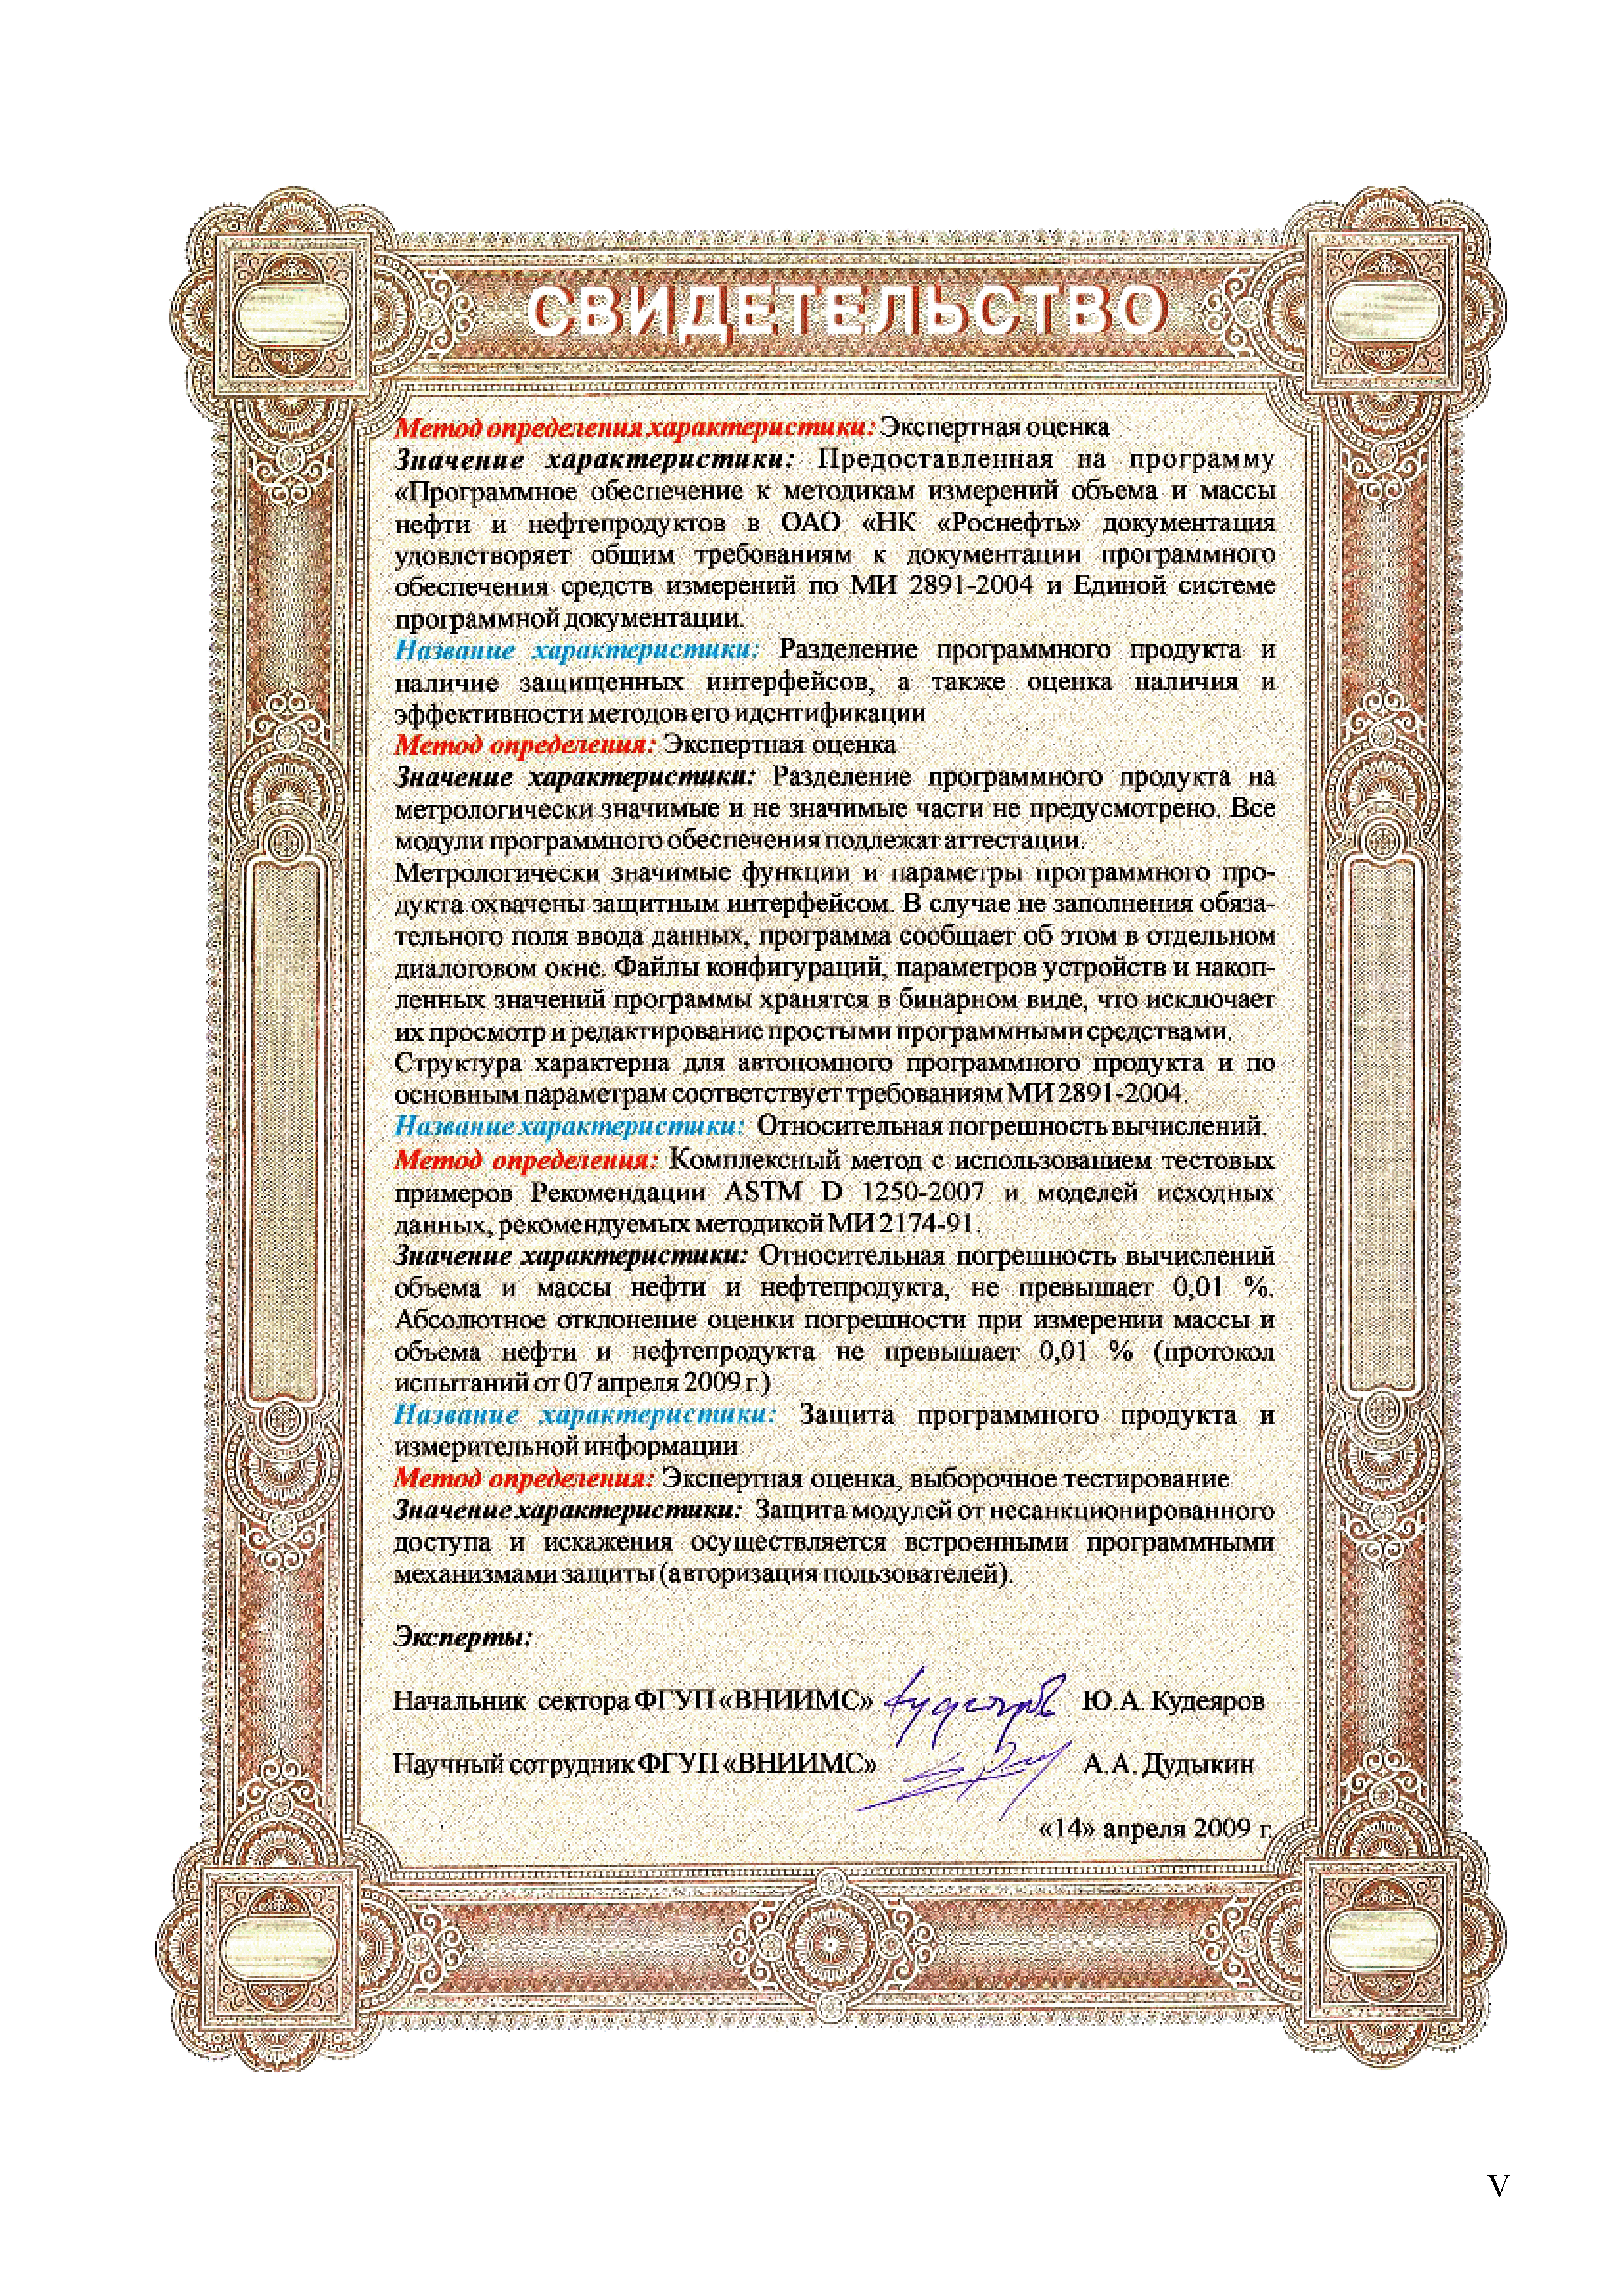 СВИДЕТЕЛЬСТВО
Метод определения характеристики: Экспертная оценка
Значение характеристики: Предоставленная на программу
«Программное обеспечение к методикам измерений объема и массы
нефти и нефтепродуктов в ОАО «НК «Роснефть» документация
удовлетворяет общим требованиям к документации программного
обеспечения средств измерений по МИ 2891-2004 и Единой системе
программной документации.
Название характеристики: Разделение программного продукта и
наличие защищенных интерфейсов, а также оценка наличия и
эффективности методов его идентификации
Метод определения: Экспертная оценка
Значение характеристики: Разделение программного продукта на
метрологически значимые и не значимые части не предусмотрено. Все
модули программного обеспечения подлежат аттестации.
Метрологически значимые функции и параметры программного про-
дукта охвачены защитным интерфейсом. В случае не заполнения обяза-
тельного поля ввода данных, программа сообщает об этом в отдельном
диалоговом окне. Файлы конфигураций, параметров устройств и накоп-
ленных значений программы хранятся в бинарном виде, что исключает
их просмотр и редактирование простыми программными средствами.
Структура характерна для автономного программного продукта и по
основным параметрам соответствует требованиям МИ 2891-2004.
Название характеристики: Относительная погрешность вычислений.
Метод определения: Комплексный метод с использованием тестовых
примеров Рекомендации ASTM D 1250-2007 и моделей исходных
данных, рекомендуемых методикой МИ 2174-91.
Значение характеристики: Относительная погрешность вычислений
объема и массы нефти и нефтепродукта, не превышает 0,01 %.
Абсолютное отклонение оценки погрешности при измерении массы и
объема нефти и нефтепродукта не превышает 0,01 % (протокол
испытаний от 07 апреля 2009 г.)
Название характеристики: Защита программного продукта и
измерительной информации
Метод определения: Экспертная оценка, выборочное тестирование
Значение характеристики: Защита модулей от несанкционированного
доступа и искажения осуществляется встроенными программными
механизмами защиты (авторизация пользователей).
Эксперты:
Начальник сектора ФГУП «ВНИИМС» Ю.А. Кудеяров
Научный сотрудник ФГУП «ВНИИМС» А.А. Дудыкин
«14» апреля 2009 г.
V